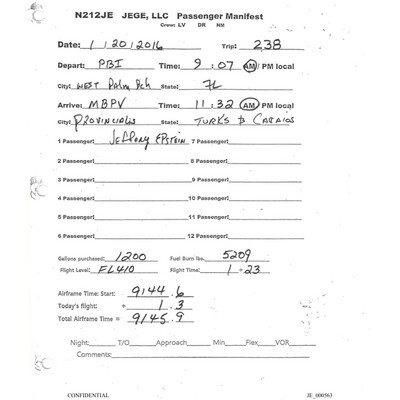 N212JE JEGE, LLC Passenger Manifest
Crew: LV DR NM
Date: 1/20/2016 Trip: 238
Depart: PBI Time: 9:07 AM/PM local
City: WEST Palm Bch State: FL
Arrive: MBPV Time: 11:32 AM/PM local
City: PROVINCIALES State: TURKS & CAICOS
1 Passenger: Jeffrey EPSTEIN 7 Passenger:
2 Passenger: 8 Passenger:
3 Passenger: 9 Passenger:
4 Passenger: 10 Passenger:
5 Passenger: 11 Passenger:
6 Passenger: 12 Passenger:
Gallons purchased: 1200 Fuel Burn lbs. 5209
Flight Level: FL410 Flight Time: 1+23
Airframe Time: Start: 9144.6
Today's flight: + 1.3
Total Airframe Time = 9145.9
Night: T/O Approach Min Flex VOR
Comments:
CONFIDENTIAL JE_000563